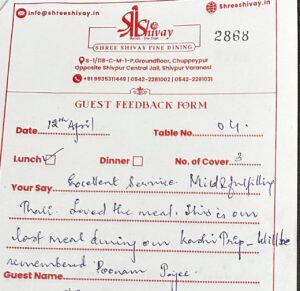 info@shreeshivay.in
@shreeshivay.in
Shree Shivay
2868
SHREE SHIVAY FINE DINING
S-1/118-C-M-1-P,Groundfloor, Chuppeypur
Opposite Shivpur Central Jail, Shivpur Varanasi
+91 9935311449 | 0542-2281002 | 0542-2281031
GUEST FEEDBACK FORM
Date 12th April Table No. 04.
Lunch Dinner No. of Cover 3
Your Say Excellent Service. Mild & fulfilling
Thali. Loved the meal. This is our
last meal during our Kashi Trip - Will be
remembered Poonam
Guest Name